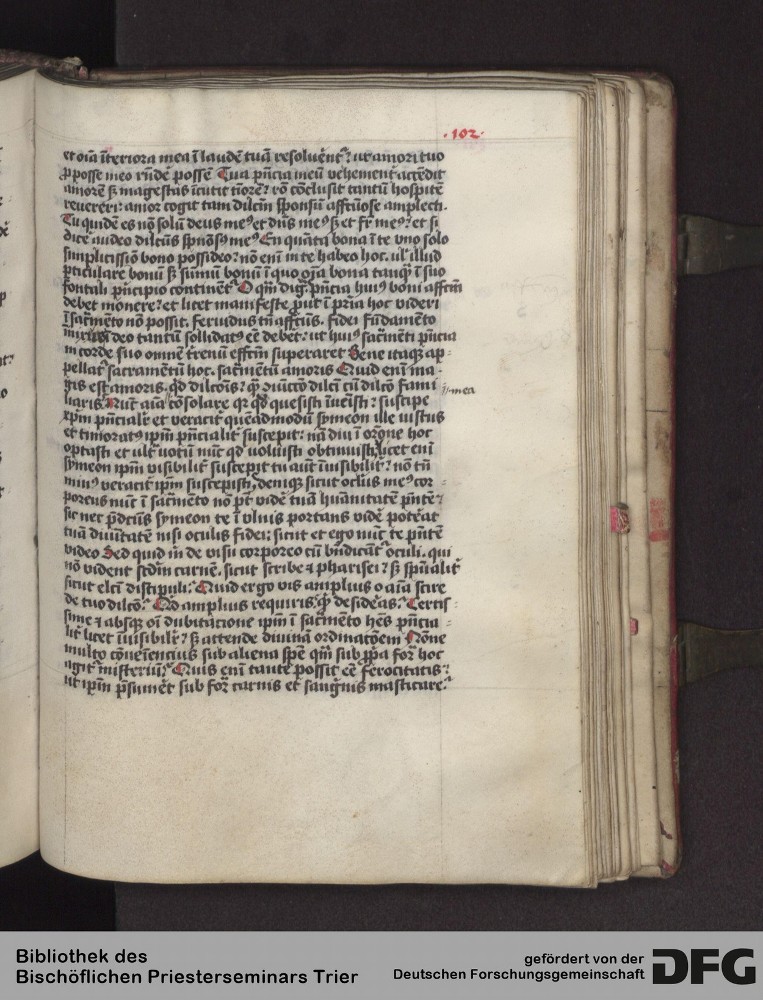 ·102·
et oīa īteriora mea ī laudē tuā resoluēnt᷑? ut amori tuo
ꝓ posse meo rn̄dē possē Tua pn̄cia meū vehement᷑ accēdit
amorē sꝫ magestas īcutit t͡iorē? rō cōclusit tantū hospitē
reuereri: amor cogit tam dilc̄m sponsū affc̄uose amplecti.
Tu quidē es nō solū deus meꝰ et dn̄s meꝰ sꝫ et fr̄ meꝰ: et si
dic̄e audeo dilc̄us spōsꝰ meꝰ En quāta bona ī te vno solo
simplicissiō bono possideo? nō enī in te habeo hoc. ul᷑ illud
pticulare bonū sꝫ sūmū bonū ī quo oīa bona tanqͣ ī suo
fontali pn̄cipio continēt᷑ O qm̄ dig᷑ pn̄cia huiꝰ boni affc̄m
debet mouere? et licet manifeste prout ī pria hoc videri
ī sac̄mēto nō possit. feruidus tn̄ affc̄us. fidei fūdamēto
deo tantū sollidatꝰ eē debet: ut huiꝰ sac̄mēti pn̄cia
in corde suo omnē trenū effc̄m superaret Bene itaqꝫ ap-
pellat᷑ sacramentū hoc. sac̄mētū amoris Quid enī ma-
gis est amoris. qd̄ dilc̄ōis? qͣ ꝯiūcc̄o dilc̄i cū dilc̄o fami
mea
liaris. Nūc aīa cōsolare qꝛ qd̄ quesisti īuēisti? suscipe
xp̄m pn̄cialit᷑ et veracit᷑ quēadmodū symeon ille iustus
et timoratꝰ ip̄m pn̄cialit᷑ suscepit: nā diu ī or̄one hoc
optasti et ult᷑ votū nūc qd̄ uoluisti obtinuisti, licet enī
symeon ip̄m visibilit᷑ suscepit tu aūt īuisibilit᷑? nō tn̄
minꝰ veracit᷑ ip̄m suscepisti, deniqꝫ sicut oclūs meꝰ cor-
poreus nūc ī sac̄mēto nō pt̄ vidē tuā hūanitatē pn̄tē?
sic nec p̄dc̄us symeon te ī vlnis portans vidē potēat
tuā diuitatē nisi oculis fidei: sicut et ego nūc te pn̄tē
video Sed quid in de visu corporeo cū bn̄dicāt᷑ oculi. qui
nō vident scd̄m carnē. sicut scribe ⁊ pharisei? sꝫ spūalit᷑
sicut elc̄i discipuli. Quid ergo vis amplius o aīa scire
de tuo dilc̄o? Qd̄ amplius requiris qͣ desideras? Certis-
sime ⁊ absqꝫ oī dubitacione ip̄m ī sac̄mēto hēs pn̄cia-
lit᷑ licet īuisibilit᷑? sꝫ attende diuinā ordinac̄oem Nōne
multo cōueniencius sub aliena spē qm̄ sub ꝓpa for᷑ hoc
agit᷑ misteriū? Quis enī tante possit eē ferocitatis?
ut ip̄m p̄sumēt᷑ sub for᷑ carnis et sang᷑nis masticare?
Bibliothek des
Bischöflichen Priesterseminars Trier
gefördert von der
Deutschen Forschungsgemeinschaft
DFG